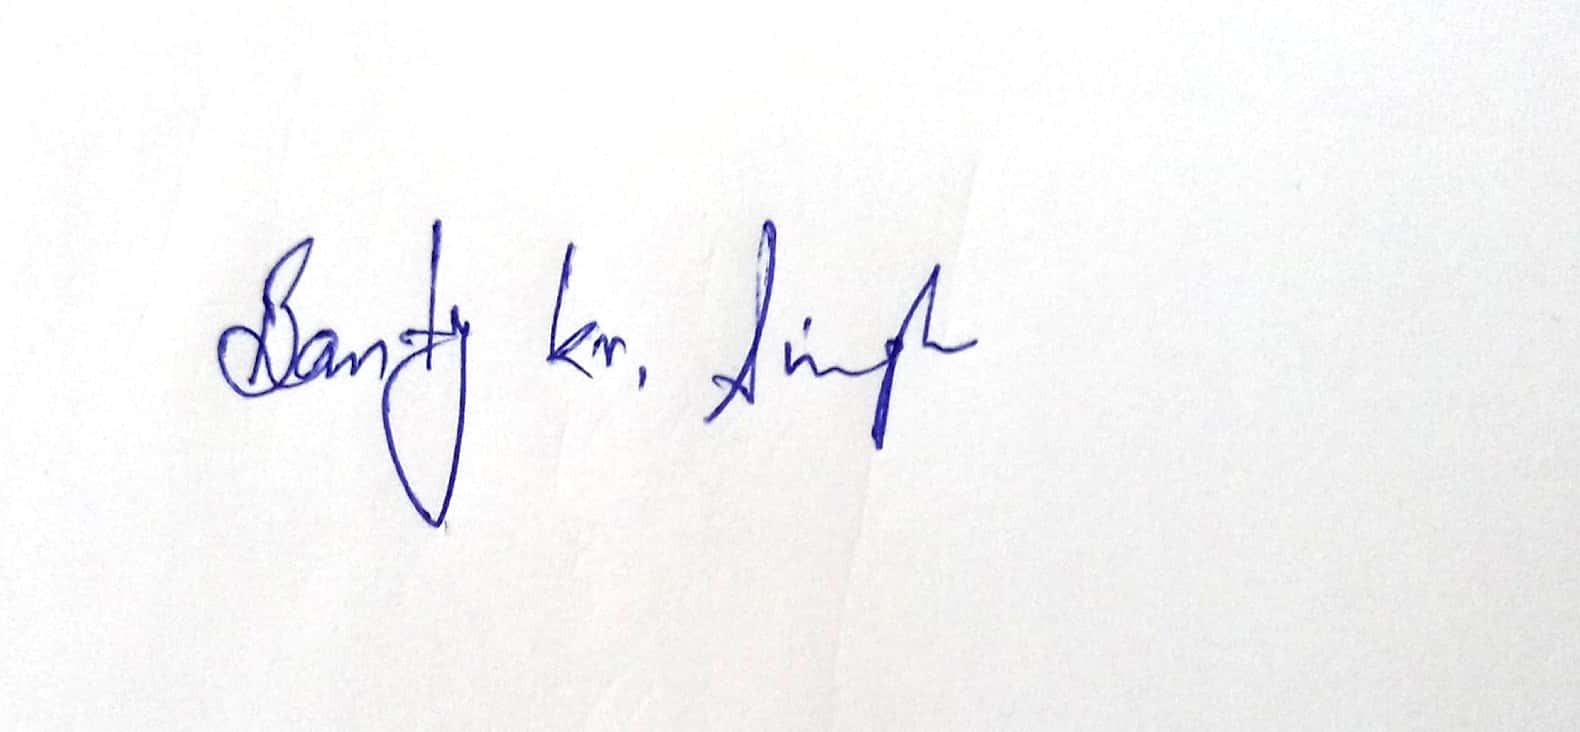 Banty kr. Singh